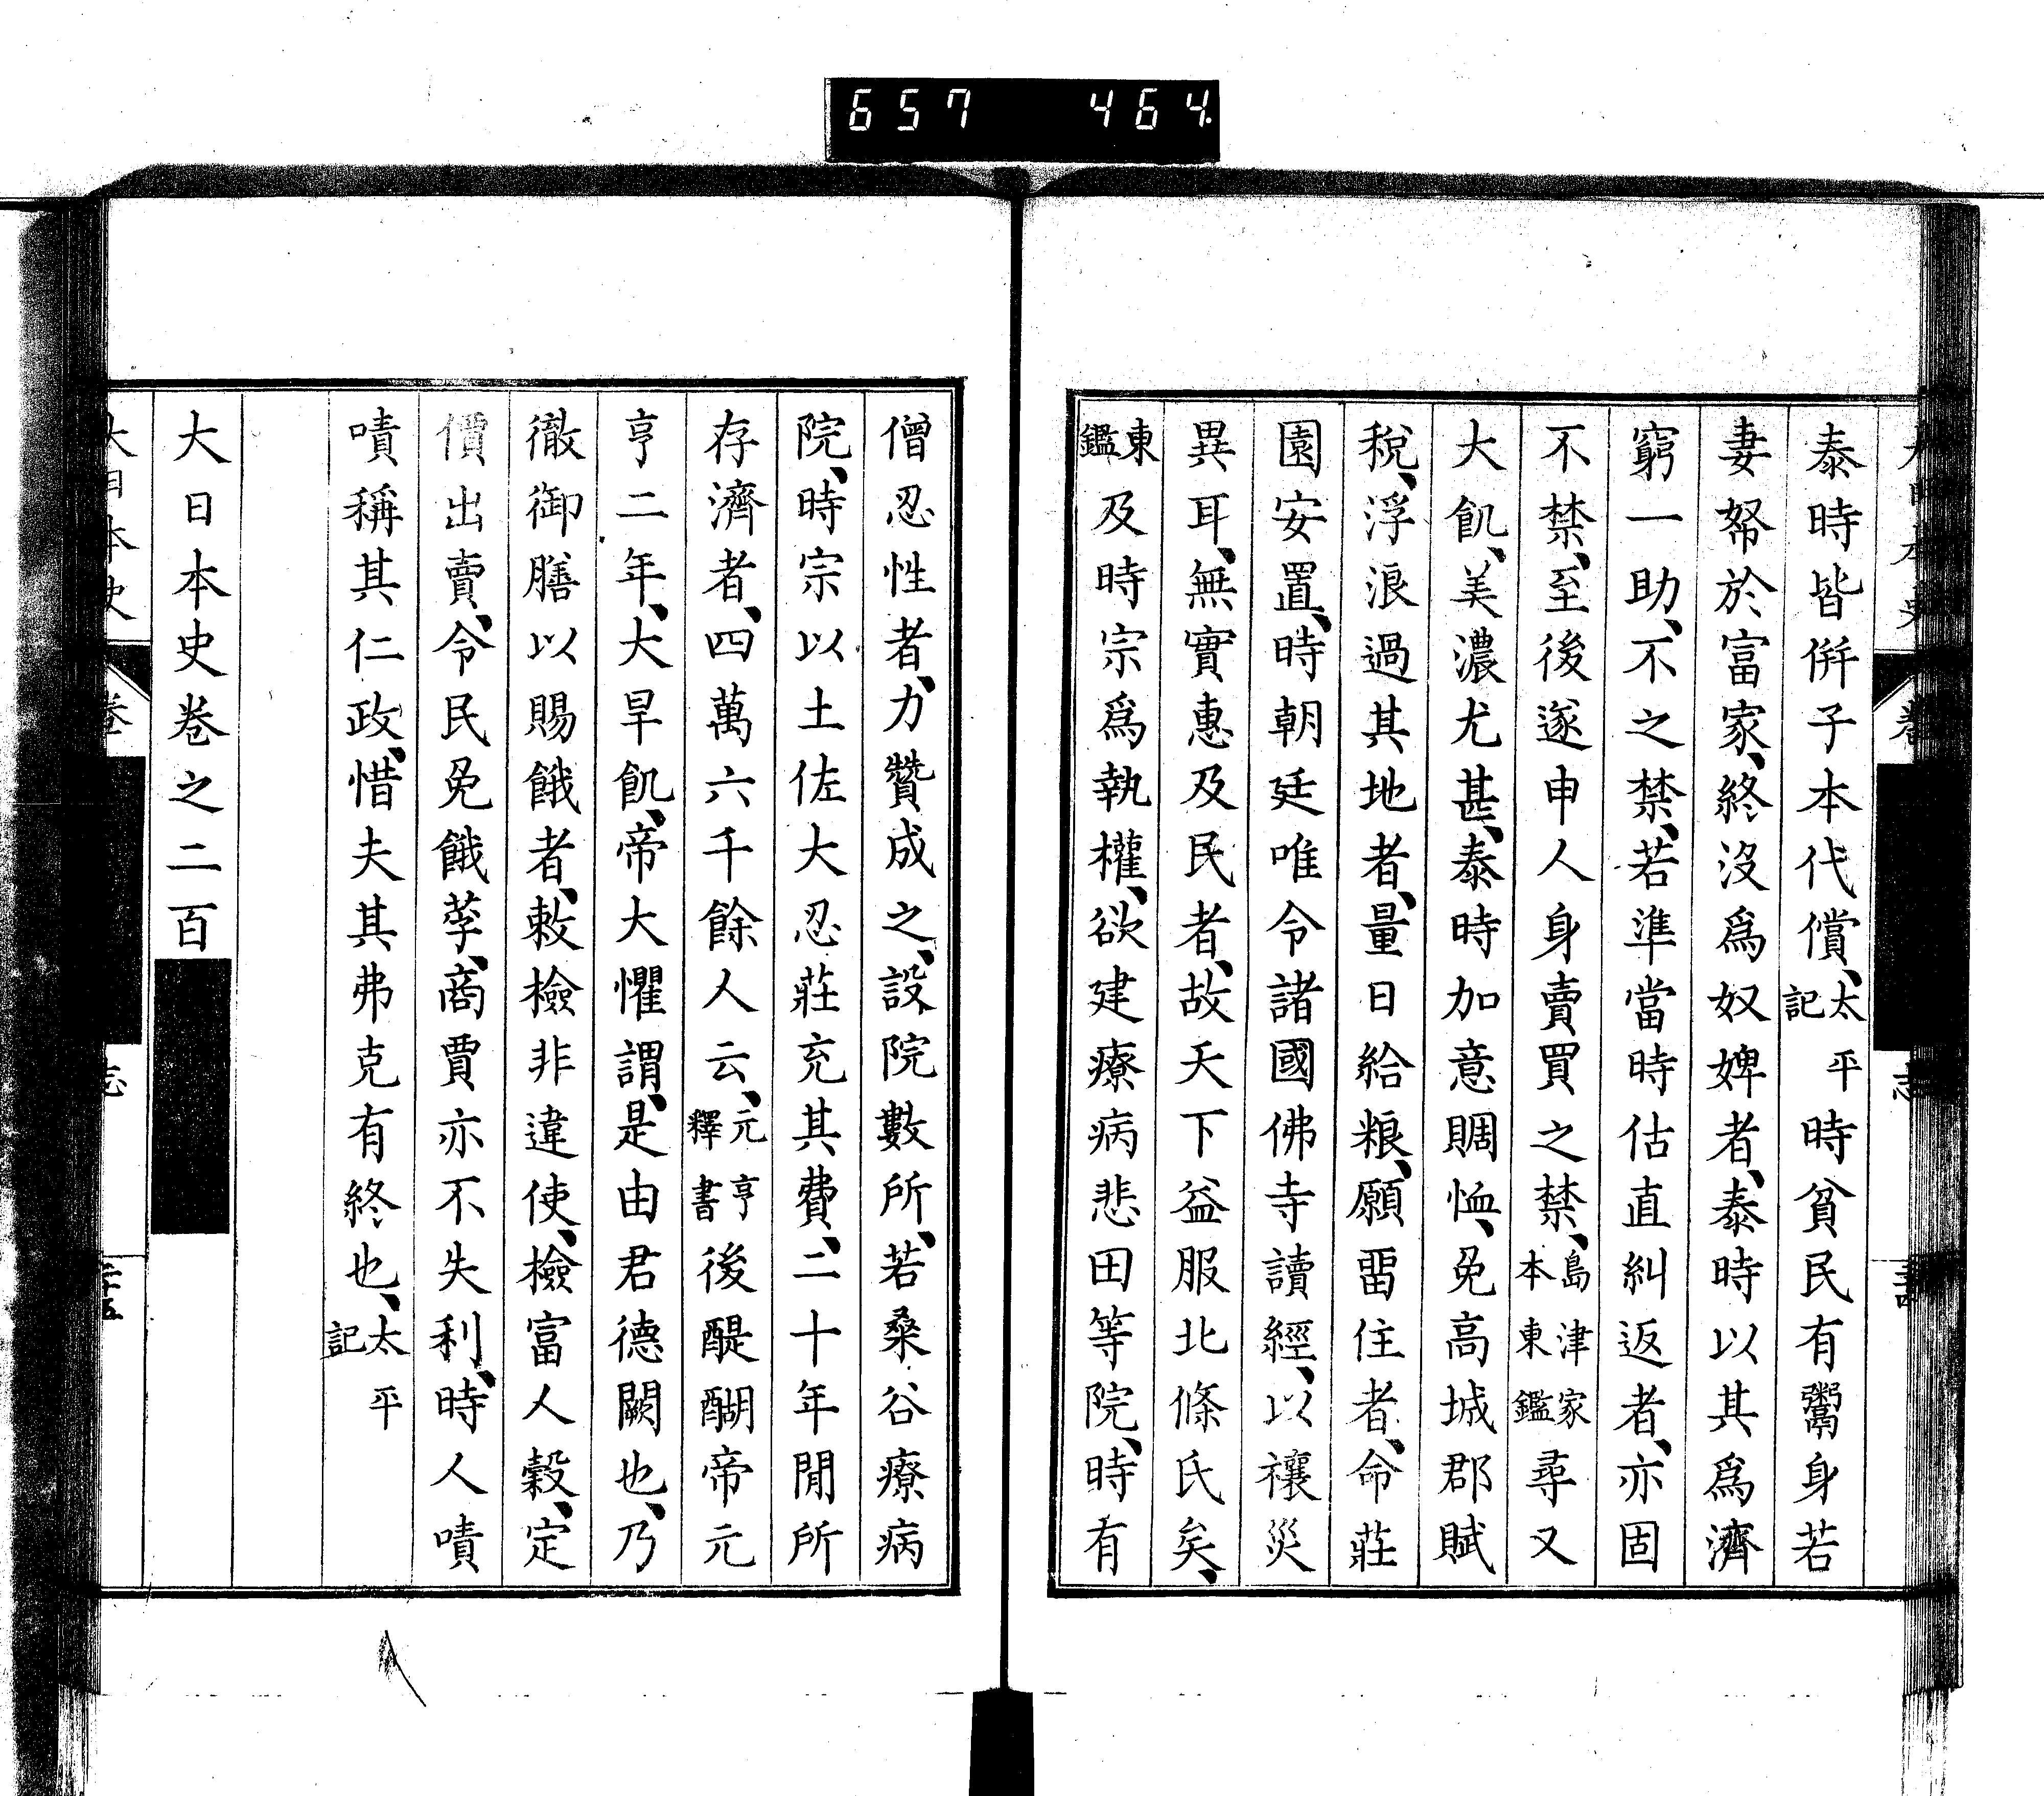 657 464
泰時皆併子本代償、太平記時貧民有鬻身若
妻帑於富家、終沒爲奴婢者、泰時以其爲濟
窮一助、不之禁、若準當時估直糾返者、亦固
不禁、至後遂申人身賣買之禁、島津家本東鑑尋又
大飢、美濃尤甚、泰時加意賙恤、免高城郡賦
稅、浮浪過其地者、量日給粮、願畱住者、命莊
園安置、時朝廷唯令諸國佛寺讀經、以禳災
異耳、無實惠及民者、故天下益服北條氏矣、
東鑑及時宗爲執權、欲建療病悲田等院、時有
僧忍性者、力贊成之、設院數所、若桑谷療病
院、時宗以土佐大忍莊充其費、二十年閒所
存濟者、四萬六千餘人云、元亨釋書後醍醐帝元
亨二年、大旱飢、帝大懼謂、是由君德闕也、乃
徹御膳以賜餓者、敕檢非違使、檢富人穀、定
價出賣、令民免餓莩、商賈亦不失利、時人嘖
嘖稱其仁政、惜夫其弗克有終也、太平記
大日本史卷之二百
大日本史 卷 志 二十五